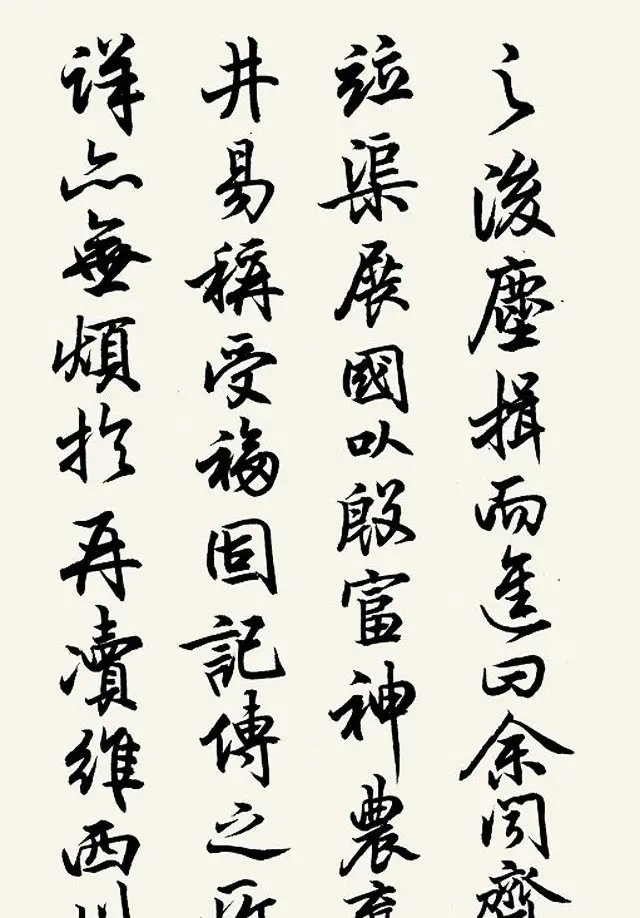 之後塵揖而進曰余聞齊
竝渠展國以殷富神農
井易稱受福固記傳之所
詳亦無煩於再瀆維西川